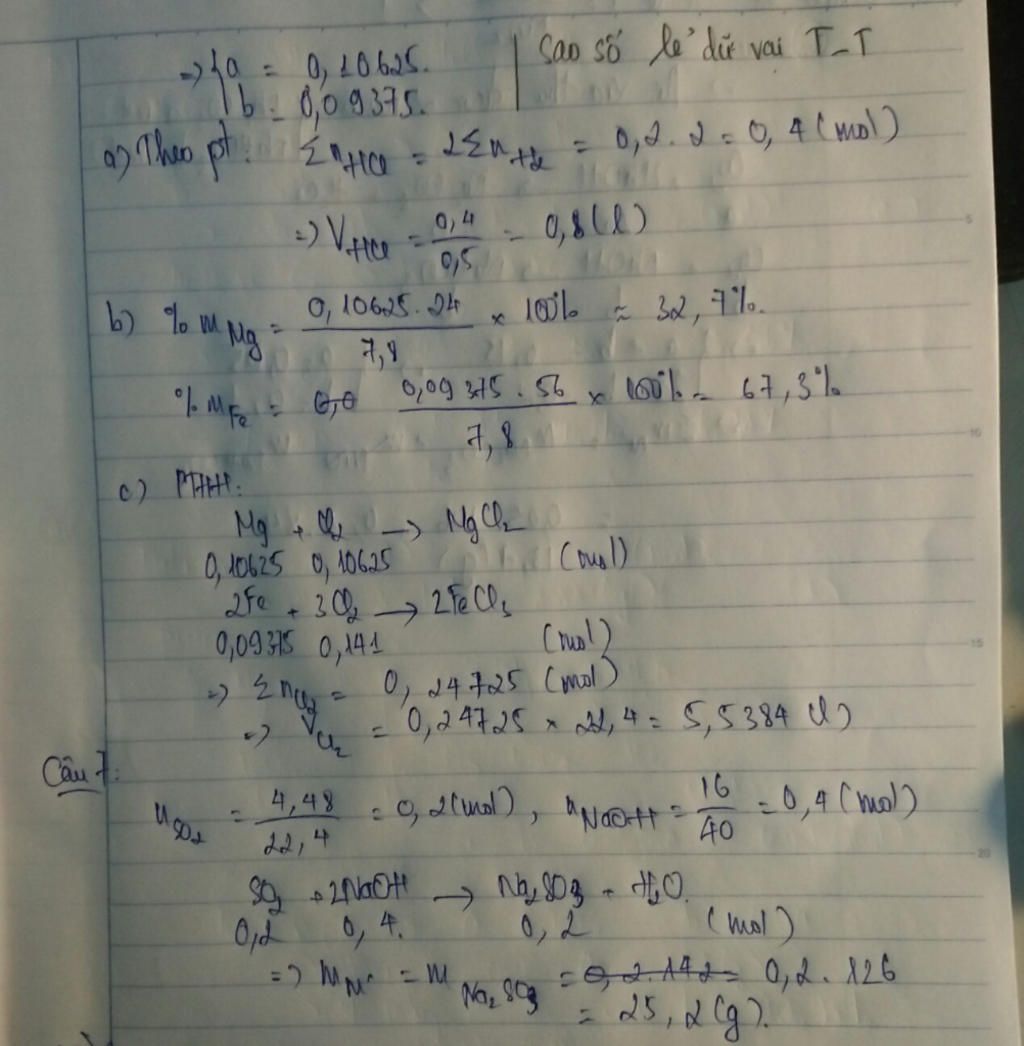 => { a = 0,10625. | Sao số lẻ dữ vai T_T
b = 0,09375.
a) Theo pt: Σn HCl = 2Σn H2 = 0,2.2 = 0,4 (mol)
=> V HCl = 0,4/0,5 = 0,8 (l)
b) % m Mg = 0,10625.24/7,8 × 100% ≈ 32,7%.
% m Fe = 0,0 0,09375.56/7,8 × 100% = 67,3%
c) PTHH:
Mg + Cl2 → MgCl2
0,10625 0,10625 (mol)
2Fe + 3Cl2 → 2FeCl3
0,09375 0,141 (mol)
=> Σn Cl2 = 0,24725 (mol)
=> V Cl2 = 0,24725 × 22,4 = 5,5384 (l)
Câu 7:
n SO2 = 4,48/22,4 = 0,2 (mol), n NaOH = 16/40 = 0,4 (mol)
SO2 + 2NaOH → Na2SO3 + H2O.
0,2 0,4. 0,2 (mol)
=> m M' = m Na2SO3 = 0,2.142 = 0,2.126
= 25,2 (g).